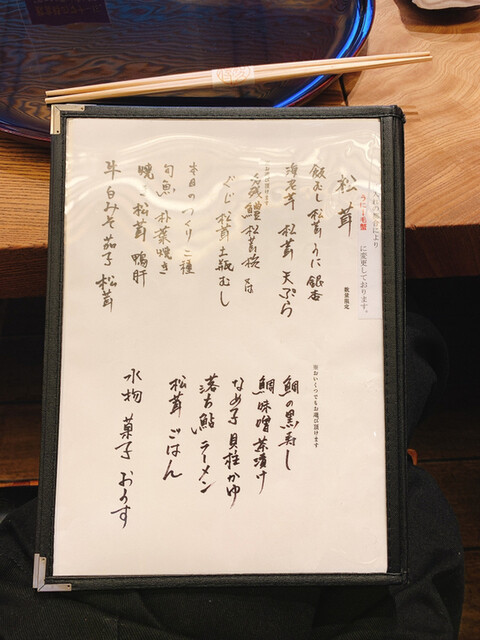 により
うに→毛蟹
に変更しております。
数量限定
松茸
飯むし 松茸 うに 銀杏
海老芋 松茸 天ぷら
鱧松茸椀 又は
ぐじ 松茸 土瓶むし
本日のつくり二種
旬魚 朴葉焼き
焼き松茸 鴨肝
牛白みそ 茄子 松茸
※おいくつでもお選び頂けます
鯛の黒寿し
鯛味噌茶漬け
なめ子 貝柱かゆ
落ち鮎 ラーメン
松茸ごはん
水物 菓子 おうす